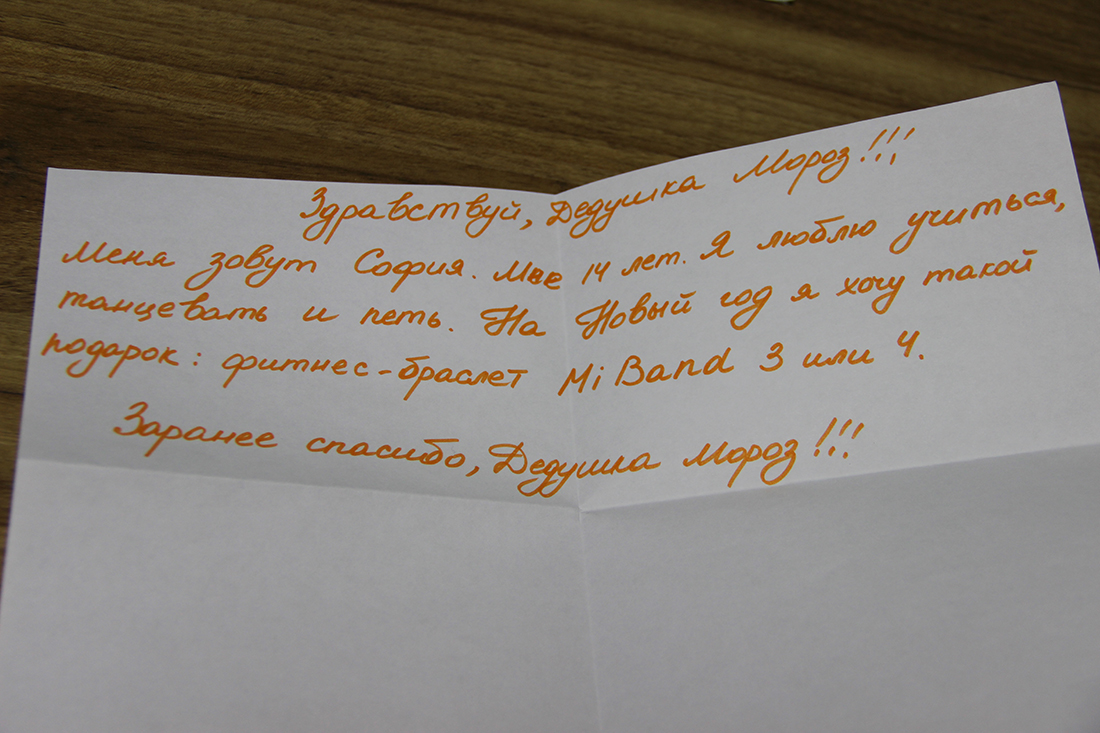 Здравствуй, Дедушка Мороз!!!
Меня зовут София. Мне 14 лет. Я люблю учиться,
танцевать и петь. На Новый год я хочу такой
подарок: фитнес-браслет Mi Band 3 или 4.
Заранее спасибо, Дедушка Мороз!!!